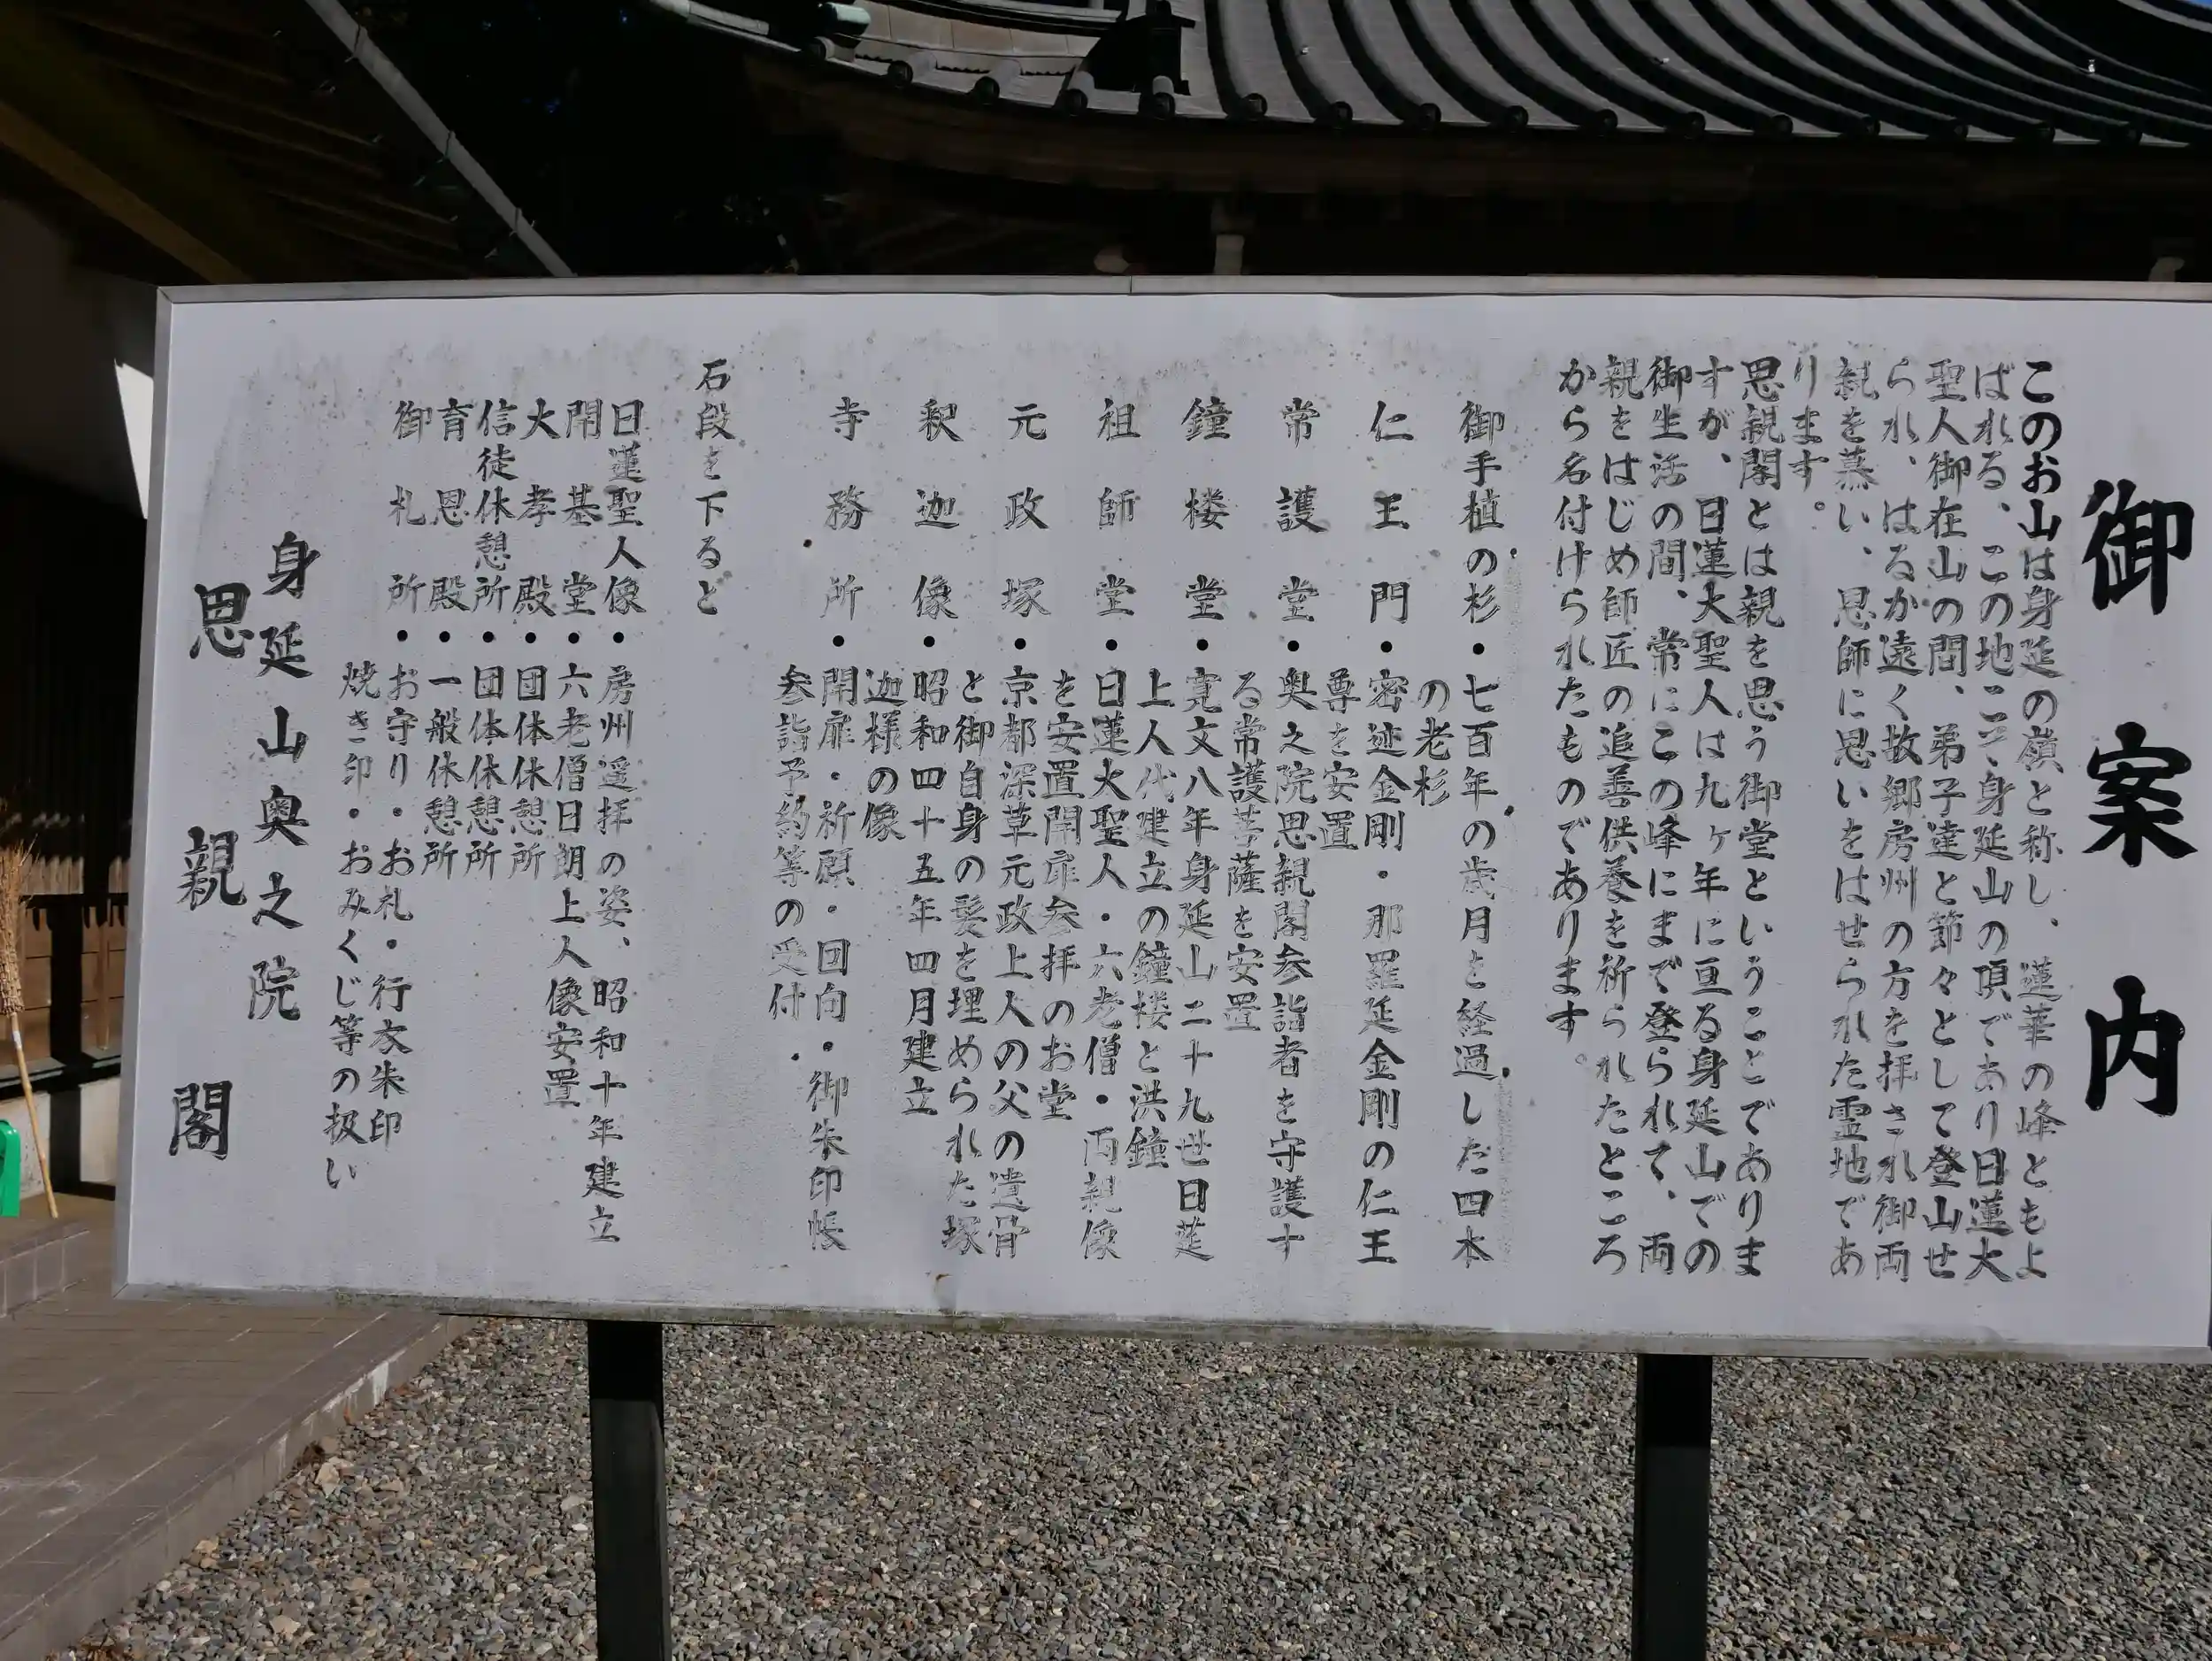 御案内
このお山は身延の嶺と称し、蓮華の峰ともよ
ばれる、この地こそ身延山の頂であり日蓮大
聖人御在山の間、弟子達と節々として登山せ
られ、はるか遠く故郷房州の方を拝され御両
親を慕い、恩師に思いをはせられた霊地であ
ります。
思親閣とは親を思う御堂ということでありま
すが、日蓮大聖人は九ヶ年に亘る身延山での
御生活の間、常にこの峰にまで登られて、両
親をはじめ師匠の追善供養を祈られたところ
から名付けられたものであります。
御手植の杉・七百年の歳月を経過した四本
の老杉
仁王門・密迹金剛・那羅延金剛の仁王
尊を安置
常護堂・奥之院思親閣参詣者を守護す
る常護菩薩を安置
鐘楼堂・寛文八年身延山二十九世日莚
上人代建立の鐘楼と洪鐘
祖師堂・日蓮大聖人・六老僧・両親像
を安置開扉参拝のお堂
元政塚・京都深草元政上人の父の遺骨
と御自身の髪を埋められた塚
釈迦像・昭和四十五年四月建立
迦様の像
寺務所・開扉・祈願・回向・御朱印帳
参詣予約等の受付
石段を下ると
日蓮聖人像・房州遥拝の姿、昭和十年建立
開基堂・六老僧日朗上人像安置
大孝殿・団体休憩所
信徒休憩所・団体休憩所
育恩殿・一般休憩所
御札所・お守り・お札・行衣朱印
焼き印・おみくじ等の扱い
身延山奥之院
思親閣